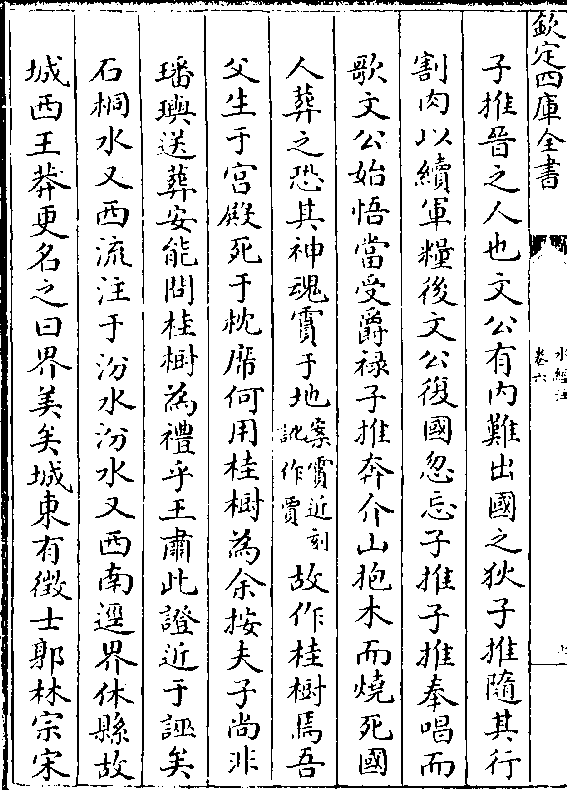 欽定四庫全書
水經注
卷六
子推晉之人也文公有内難出國之狄子推隨其行
割肉以續軍糧後文公復國忽忘子推子推奉唱而
歌文公始悟當受爵禄子推奔介山抱木而燒死國
人葬之恐其神魂霣于地案霣近刻訛作賈故作桂樹焉吾
父生于宫殿死于枕席何用桂樹為余按夫子尚非
璠璵送葬安能問桂樹為禮乎王肅此證近于誣矣
石桐水又西流注于汾水汾水又西南逕界休縣故
城西王莽更名之曰界美矣城東有徵士郭林宗宋